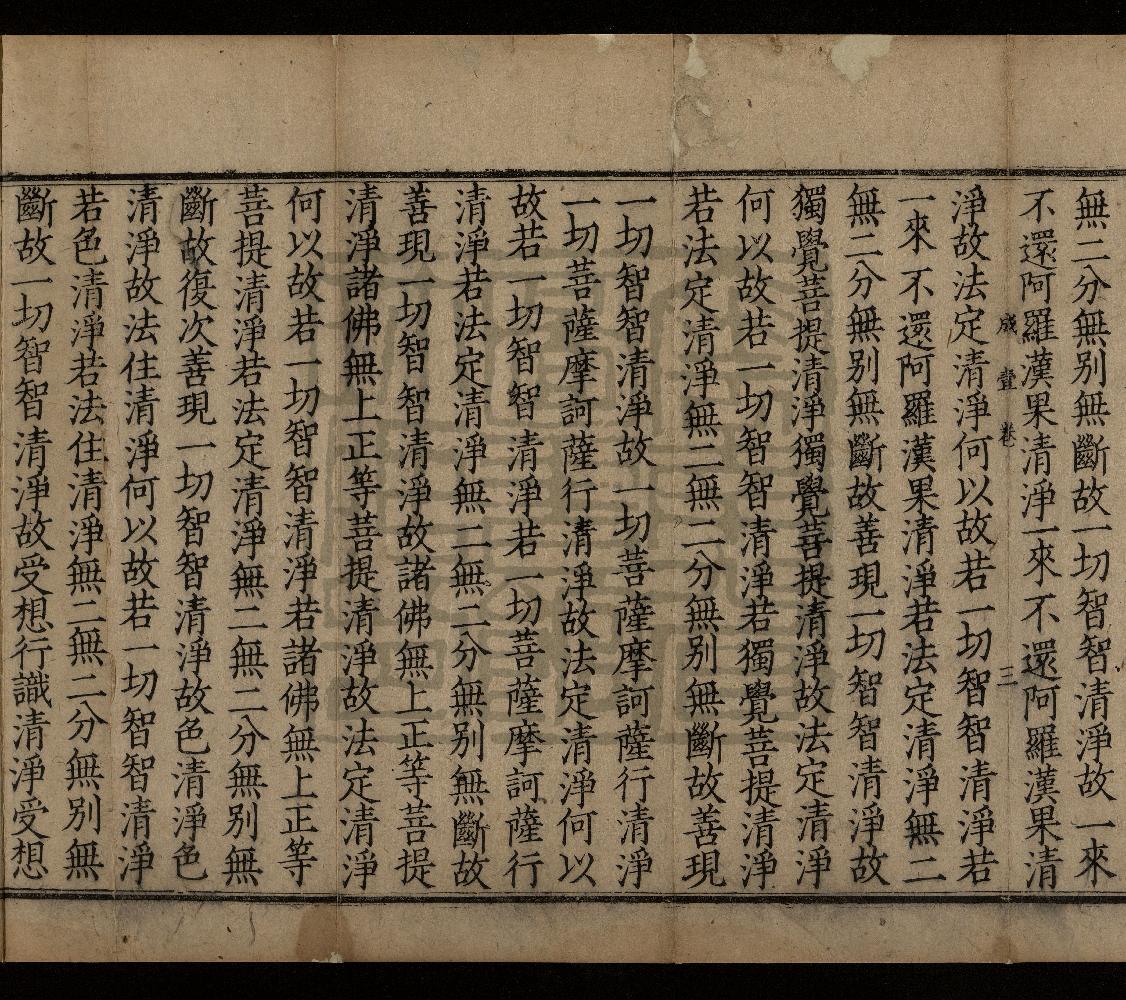 無二分無別無斷故一切智智清淨故一來
不還阿羅漢果清淨一來不還阿羅漢果清
成 壹 卷 三
淨故法定清淨何以故若一切智智清淨若
一來不還阿羅漢果清淨若法定清淨無二
無二分無別無斷故善現一切智智清淨故
獨覺菩提清淨獨覺菩提清淨故法定清淨
何以故若一切智智清淨若獨覺菩提清淨
若法定清淨無二無二分無別無斷故善現
一切智智清淨故一切菩薩摩訶薩行清淨
一切菩薩摩訶薩行清淨故法定清淨何以
故若一切智智清淨若一切菩薩摩訶薩行
清淨若法定清淨無二無二分無別無斷故
善現一切智智清淨故諸佛無上正等菩提
清淨諸佛無上正等菩提清淨故法定清淨
何以故若一切智智清淨若諸佛無上正等
菩提清淨若法定清淨無二無二分無別無
斷故復次善現一切智智清淨故色清淨色
清淨故法住清淨何以故若一切智智清淨
若色清淨若法住清淨無二無二分無別無
斷故一切智智清淨故受想行識清淨受想